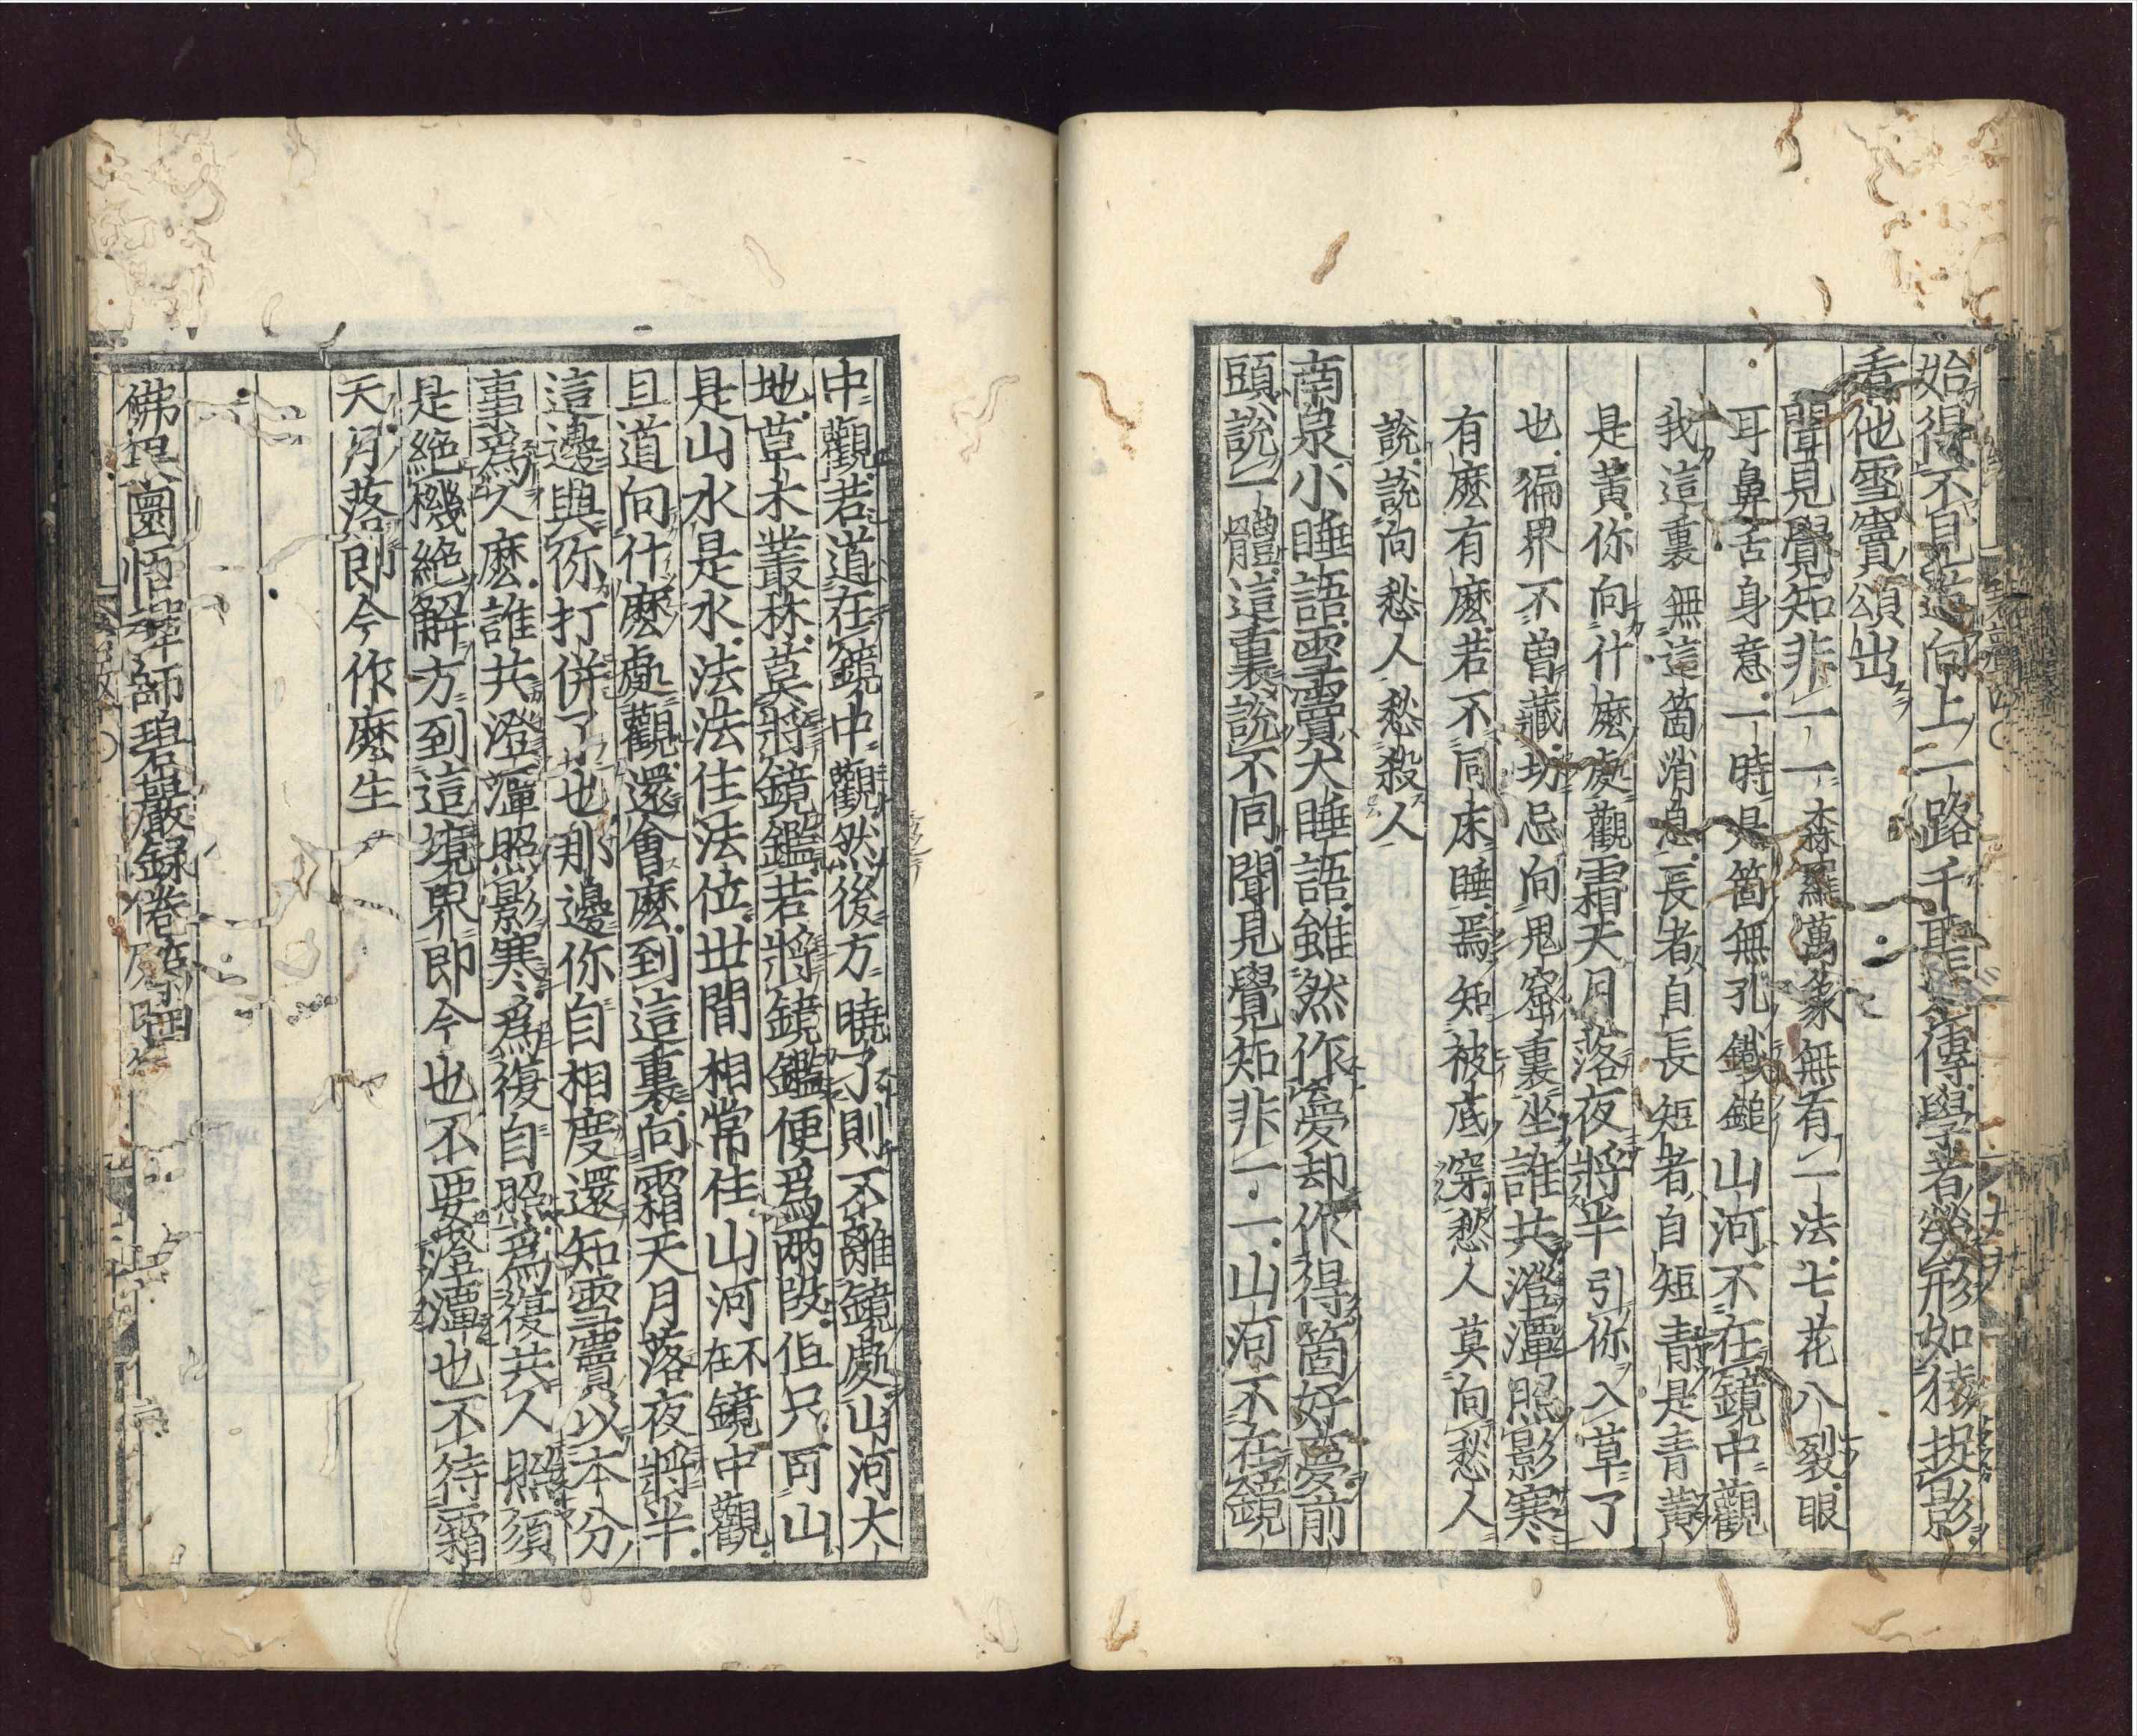 始得不見道向上一路千聖不傳學者勞形如猿捉影
看他雪竇頌出
聞見覺知非一一森羅萬象無有一法七花八裂眼
耳鼻舌身意一時是箇無孔鐵鎚山河不在鏡中觀
我這裏無這箇消息長者自長短者自短青是青黃
是黃你向什麼處觀霜天月落夜將半引你入草了
也徧界不曾藏切忌向鬼窟裏坐誰共澄潭照影寒
有麼有麼若不同床睡焉知被底穿愁人莫向愁人
說說向愁人愁殺人
南泉小睡語雪竇大睡語雖然作夢却作得箇好夢前
頭說一體這裏說不同聞見覺知非一一山河不在鏡
中觀若道在鏡中觀然後方曉了則不離鏡處山河大
地草木叢林莫將鏡鑑若將鏡鑑便爲兩段但只可山
是山水是水法法住法位世間相常住山河不在鏡中觀
且道向什麼處觀還會麼到這裏向霜天月落夜將半
這邊與你打併了也那邊你自相度還知雪竇以本分
事爲人麼誰共澄潭照影寒爲復自照爲復共人照須
是絶機絶解方到這境界即今也不要澄潭也不待霜
天月落即今作麼生
佛果圜悟禪師碧巖錄卷第四